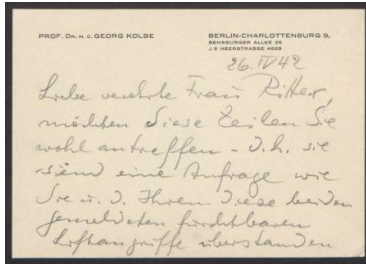 PROF. DR. H. C. GEORG KOLBE
BERLIN-CHARLOTTENBURG 9,
SENSBURGER ALLEE 25
J 9 HEERSTRASSE 4028
26. IV 42
Liebe verehrte Frau Ritter,
möchten diese Zeilen Sie
wohl antreffen – d.h. sie
sind eine Anfrage wie
Sie u. d. Ihren diese beiden
gemeldeten furchtbaren
Luftangriffe überstanden